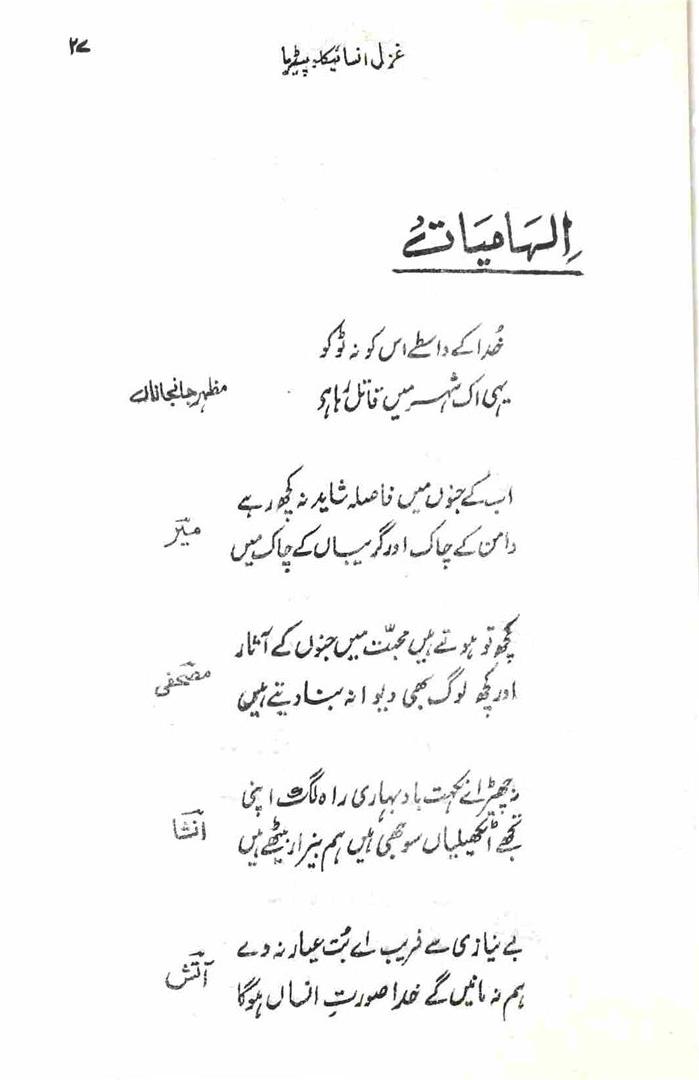 ۲۷
غزل انسائیکلوپیڈیا
اِلہَامیَات
خُدا کے واسطے اس کو نہ ٹوکو
یہی اک شہر میں قاتل رہا ہے
مظہر جانجاناں
اب کے جنوں میں فاصلہ شاید نہ کچھ رہے
دامن کے چاک اور گریباں کے چاک میں
میرؔ
کچھ تو ہوتے ہیں محبّت میں جنوں کے آثار
اور کچھ لوگ بھی دیوانہ بنا دیتے ہیں
مصحفیؔ
نہ چھیڑ اے نکہت باد بہاری راہ لگ اپنی
تجھے اٹھکیلیاں سوجھی ہیں ہم بیزار بیٹھے ہیں
انشاؔ
بے نیازی سے فریب اے بُت عیار نہ دے
ہم نہ مانیں گے خدا صورتِ انساں ہوگا
آتشؔ